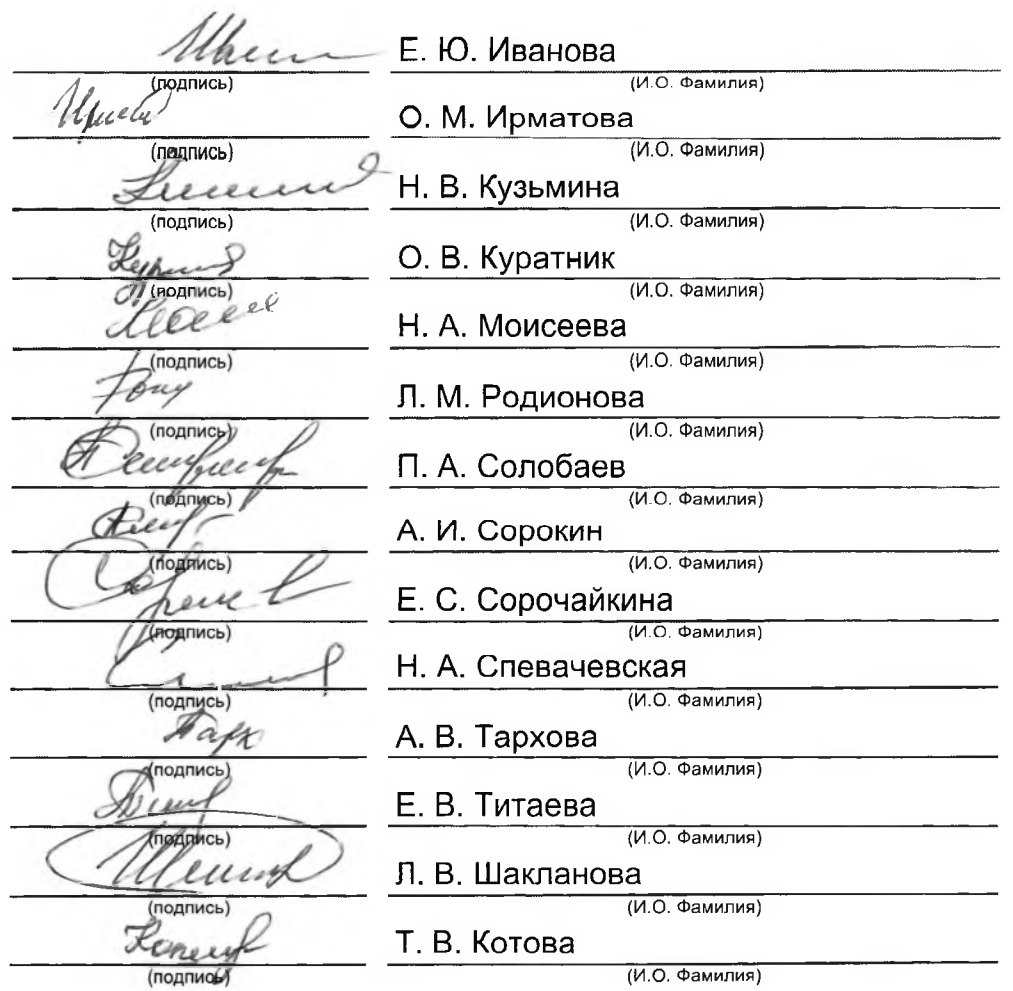 Е. Ю. Иванова
(подпись) (И.О. Фамилия)
О. М. Ирматова
(подпись) (И.О. Фамилия)
Н. В. Кузьмина
(подпись) (И.О. Фамилия)
О. В. Куратник
(подпись) (И.О. Фамилия)
Н. А. Моисеева
(подпись) (И.О. Фамилия)
Л. М. Родионова
(подпись) (И.О. Фамилия)
П. А. Солобаев
(подпись) (И.О. Фамилия)
А. И. Сорокин
(подпись) (И.О. Фамилия)
Е. С. Сорочайкина
(подпись) (И.О. Фамилия)
Н. А. Спевачевская
(подпись) (И.О. Фамилия)
Тарх А. В. Тархова
(подпись) (И.О. Фамилия)
Е. В. Титаева
(подпись) (И.О. Фамилия)
Л. В. Шакланова
(подпись) (И.О. Фамилия)
Т. В. Котова
(подпись) (И.О. Фамилия)